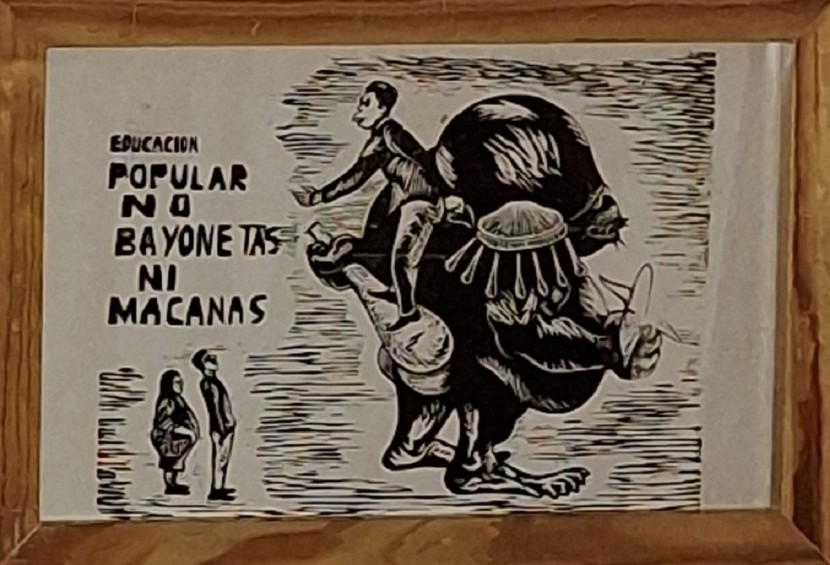 EDUCACION
POPULAR
NO
BAYONETAS
NI
MACANAS